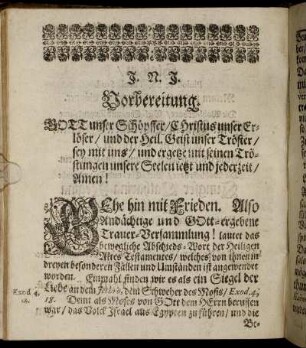 J. N. J.
Vorbereitung.
GOTT unser Schöpffer/Christus unser Er-
löser/ und der Heil. Geist unser Tröster/
sey mit uns/ und ergetze mit seinen Trö-
stungen unsere Seelen ietzt und jederzeit/
Amen!
GEhe hin mit Frieden. Also
Andächtige und GOtt-ergebene
Trauer-Versammlung! lautet das
bewegliche Abschieds-Wort der Heiligen
Altes Testamentes/ welches von ihnen in
dreyen besonderen Fällen und Umständen ist angewendet
worden. Einmahl finden wir es als ein Siegel der
Liebe an dem Jethro, dem Schweher des Mosis/ Exod. 4,
Exod 4,
18.
18. Denn als Moses von GOtt dem HErrn beruffen
war/ das Volck Israel aus Egypten zu führen/ und die
Be-